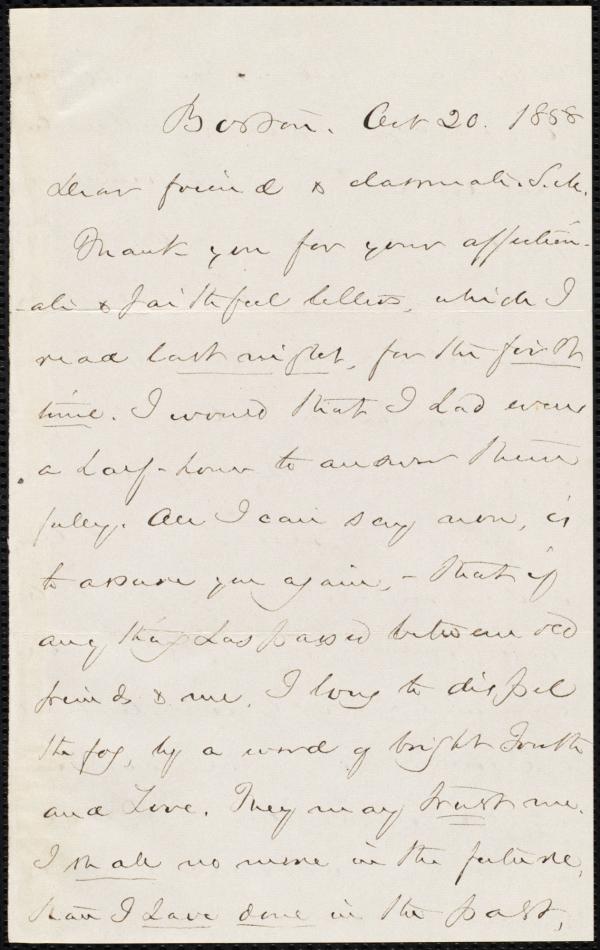 Boston. Oct 20. 1858
Dear friend & classmate.
Thank you for your affection-
ate & faithful letters, which I
read last night, for the first
time. I would that I had even
a half-hour to answer them
fully. All I can say now, is
to assure you again, - that if
any thing has passed between old
friends & me, I long to dispel
the fog, by a word of bright Truth
and Love. They may trust me.
I shall no more in the future,
than I have done in the past,